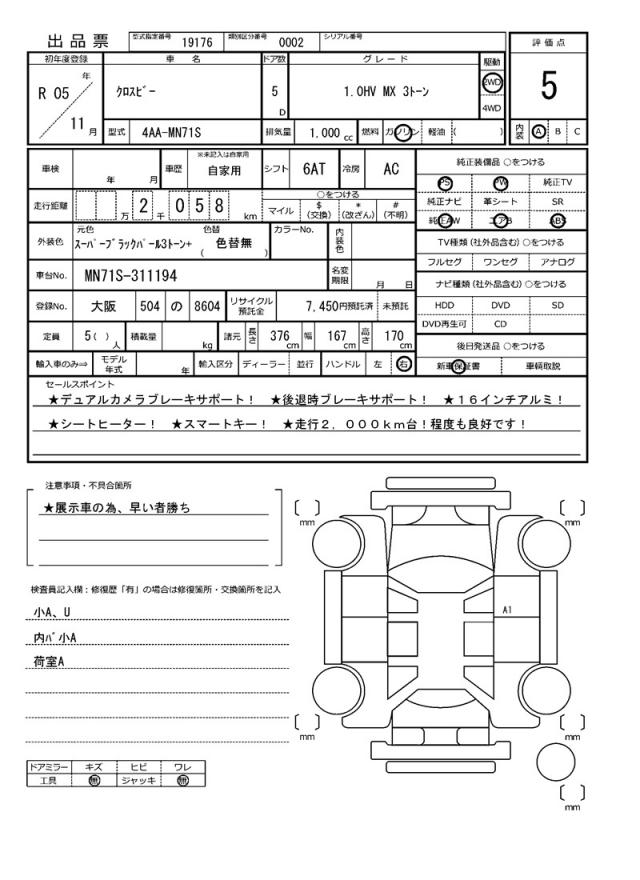 出品票 型式指定番号 19176 類別区分番号 0002 シリアル番号
評価点
5
内装 A B C
初年度登録 車名 ドア数 グレード 駆動
R 05 年 11 月 クロスビー 5 D 1.0HV MX 3トーン 2WD 4WD
型式 4AA-MN71S 排気量 1.000 cc 燃料 ガソリン 軽油 ( )
車検 年 月 車歴 ※未記入は自家用 自家用 シフト 6AT 冷房 AC
走行距離 万 2 千 0 5 8 km ○をつける
マイル $(交換) *(改ざん) #(不明)
外装色 元色 スーパーブラックパール3トーン+ 色替 ( 色替無 ) カラーNo. 内装色
車台No. MN71S-311194 名変期限 月 日
登録No. 大阪 504 の 8604 リサイクル預託金 7,450円預託済 未預託
定員 5( )人 積載量 kg 諸元 長さ 376 cm 幅 167 cm 高さ 170 cm
輸入車のみ⇒ モデル年式 年 輸入区分 ディーラー 並行 ハンドル 左 右
純正装備品 ○をつける
PS PW 純正TV
純正ナビ 革シート SR
純正AW エアB ABS
TV種類 (社外品含む) ○をつける
フルセグ ワンセグ アナログ
ナビ種類 (社外品含む) ○をつける
HDD DVD SD
DVD再生可 CD
後日発送品 ○をつける
新車保証書 車輌取説
セールスポイント
★デュアルカメラブレーキサポート! ★後退時ブレーキサポート! ★16インチアルミ!
★シートヒーター! ★スマートキー! ★走行2,000km台!程度も良好です!
注意事項・不具合箇所
★展示車の為、早い者勝ち
検査員記入欄:修復歴「有」の場合は修復箇所・交換箇所を記入
小A、U
内バ小A
荷室A
ドアミラー キズ ヒビ ワレ
工具 無 ジャッキ 無
[ ] mm
[ ] mm
A1
[ ] mm
[ ] mm
[ ] mm